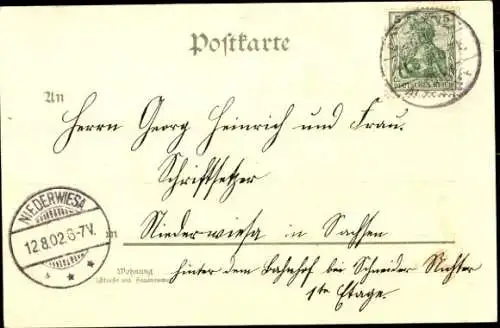 Postkarte
5 5
DEUTSCHES REICH
An
Herrn Georg Heinrich und Frau.
Schriftsetzer
NIEDERWIESA
12.8.02.6-7V.
in
Niederwiesa in Sachsen
Wohnung
hinter dem Bahnhof bei Schneider Richter
(Straße und Hausnummer)
1te Etage.